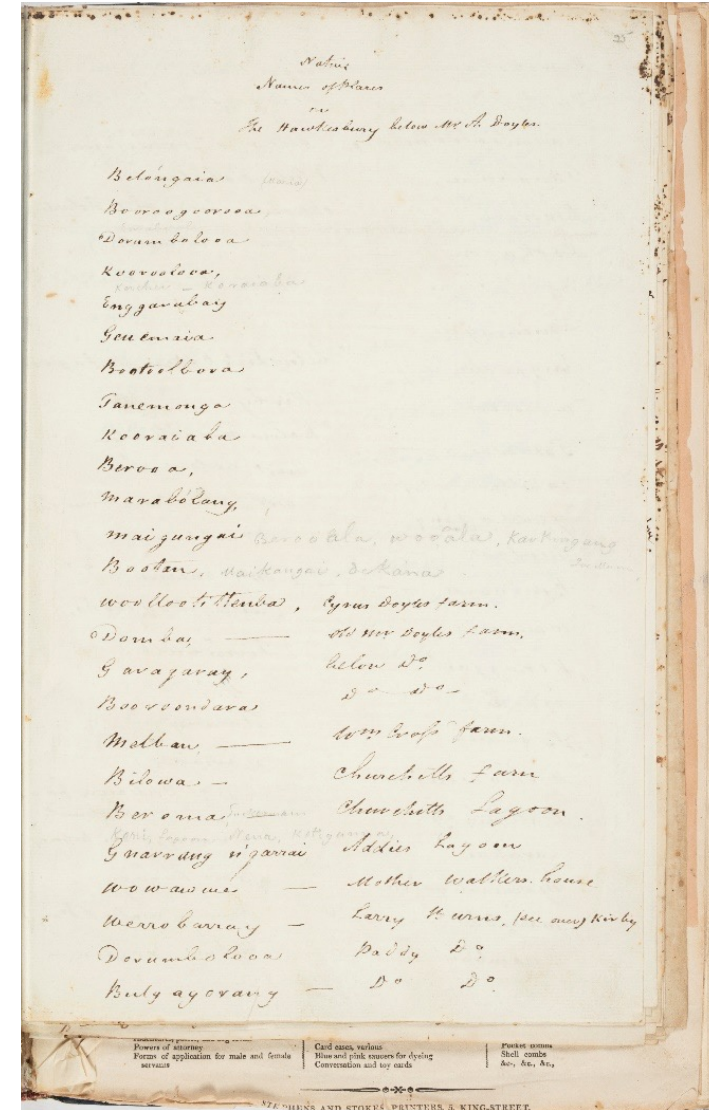 25
Native
Names of Places
on
The Hawkesbury below Mr. A. Doyles.
Belóngaia
Booroogoorooa
Dorumbolooa
Kooroolooa,
Koraiaba
Enggarubay
Genemaia
Bootoolboora
Tanemonga
Kooraiaba
Berooa,
marabólang,
maigungai Berooàla, wooàla, Karkingang
Bootan, maikongai, dukana
woollootottemba, Cyrus Doyles farm.
Domba, — old Mr Doyles farm,
Garagaray, below Do.
Booroondara Do Do
Melban — Wm Gross farm.
Bilowa — Churchills farm
Beroma Churchills Lagoon.
Gnarrang n'garrai Addies Lagoon
wowawme — Mother Walkers house
werrobarray — Larry (see over) Kirby
Dorumbolooa Paddy Do.
Bulgayorang — Do Do.
Powers of attorney
Forms of application for male and female
servants
Card cases, various
Blue and pink saucers for dyeing
Conversation and toy cards
Pocket combs
Shell combs
&c., &c., &c.,
STEPHENS AND STOKES, PRINTERS, 5, KING-STREET.